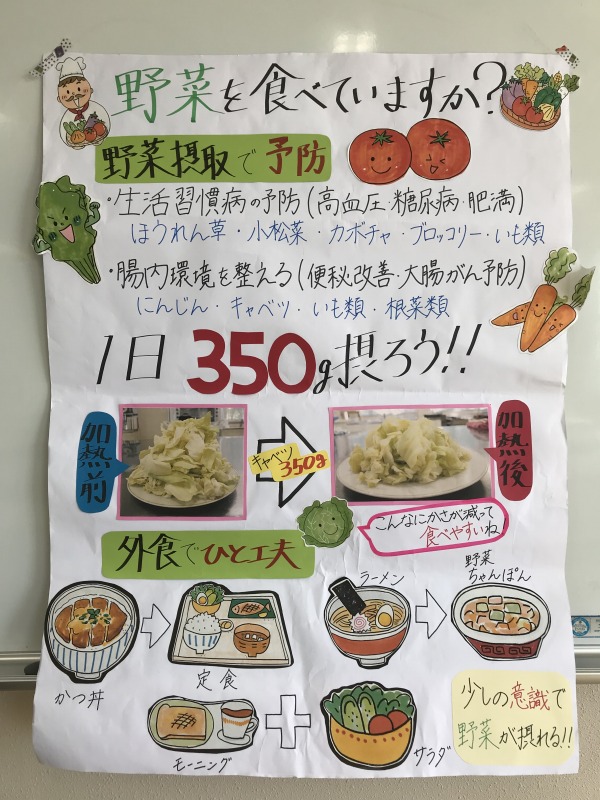 野菜を食べていますか?
野菜摂取で予防
・生活習慣病の予防(高血圧・糖尿病・肥満)
ほうれん草・小松菜・カボチャ・ブロッコリー・いも類
・腸内環境を整える(便秘改善・大腸がん予防)
にんじん・キャベツ・いも類・根菜類
1日350g摂ろう!!
加熱前
キャベツ
350g
加熱後
こんなにかさが減って
食べやすいね
外食でひと工夫
かつ丼
定食
ラーメン
野菜
ちゃんぽん
モーニング
サラダ
少しの意識で
野菜が摂れる!!